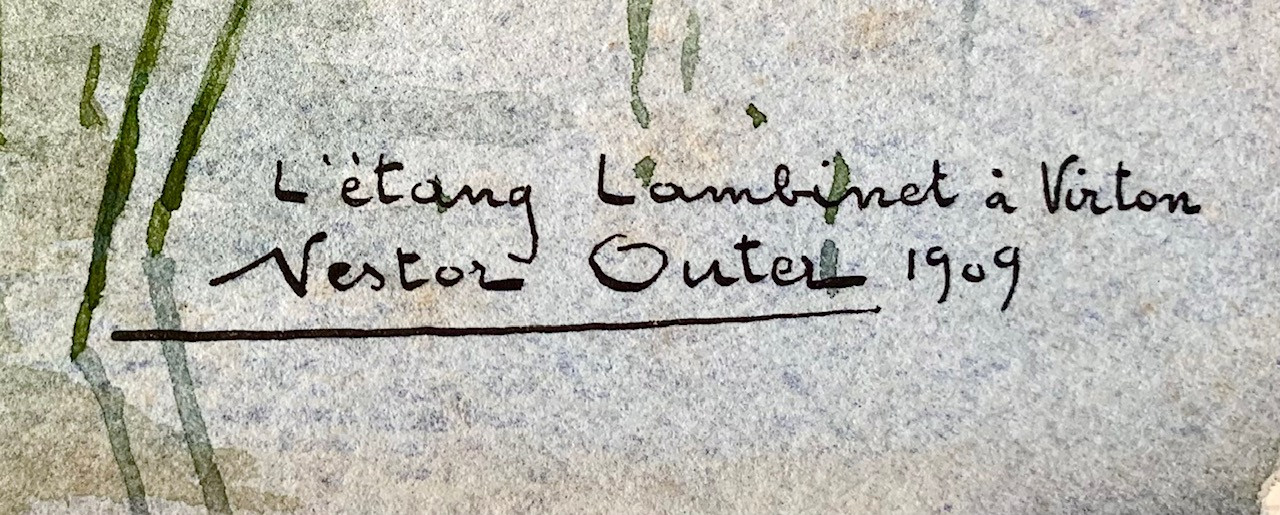 L'étang Lambinet à Virton
Nestor Outer 1909